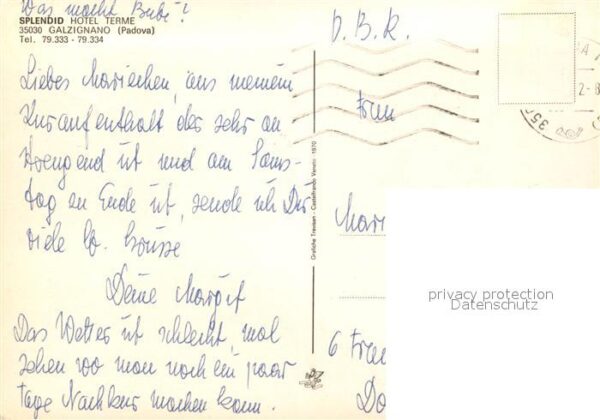 Was macht Bubi?
SPLENDID HOTEL TERME
35030 GALZIGNANO (Padova)
Tel. 79.333 - 79.334
Liebes Mariechen, aus meinem
Kuraufenthalt der sehr an
strengend ist und am Sams-
tag zu Ende ist, sende ich Dir
viele lb. Grüsse
Deine Margit
Das Wetter ist schlecht, mal
sehen wo man noch ein paar
tage Nachkur machen kann.
Grafiche Trevisan - Castelfranco Veneto 1970
D.B.R.
Frau
Mari
6 Fran
Do
350
2-8
privacy protection
Datenschutz